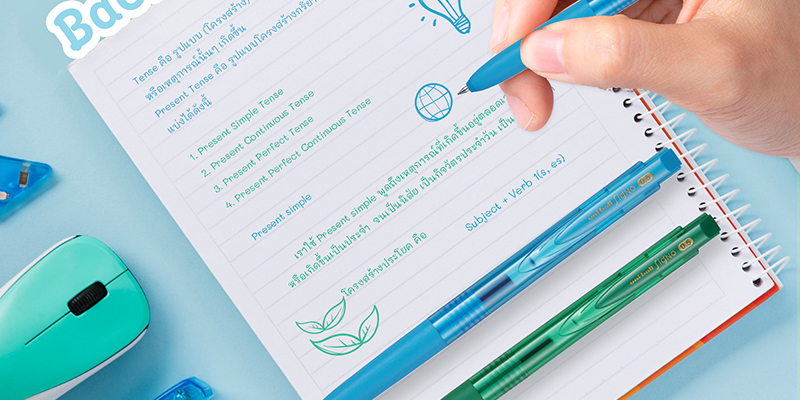 Bac
Tense คือ รูปแบบ (โครงสร้าง)
หรือเหตุการณ์นั้นๆ เกิดขึ้น
Present Tense คือ รูปแบบโครงสร้างกริยา
แบ่งได้ดังนี้
1. Present Simple Tense
2. Present Continuous Tense
3. Present Perfect Tense
4. Present Perfect Continuous Tense
Present simple
เราใช้ Present simple พูดถึงเหตุการณ์ที่เกิดขึ้นอยู่ตลอดเ
หรือเกิดขึ้นเป็นประจำ จนเป็นนิสัย เป็นกิจวัตรประจำวัน เป็น
โครงสร้างประโยค คือ Subject + Verb 1(s, es)
uni-ball SIGNO 0.5
uni-ball SIGNO 0.5